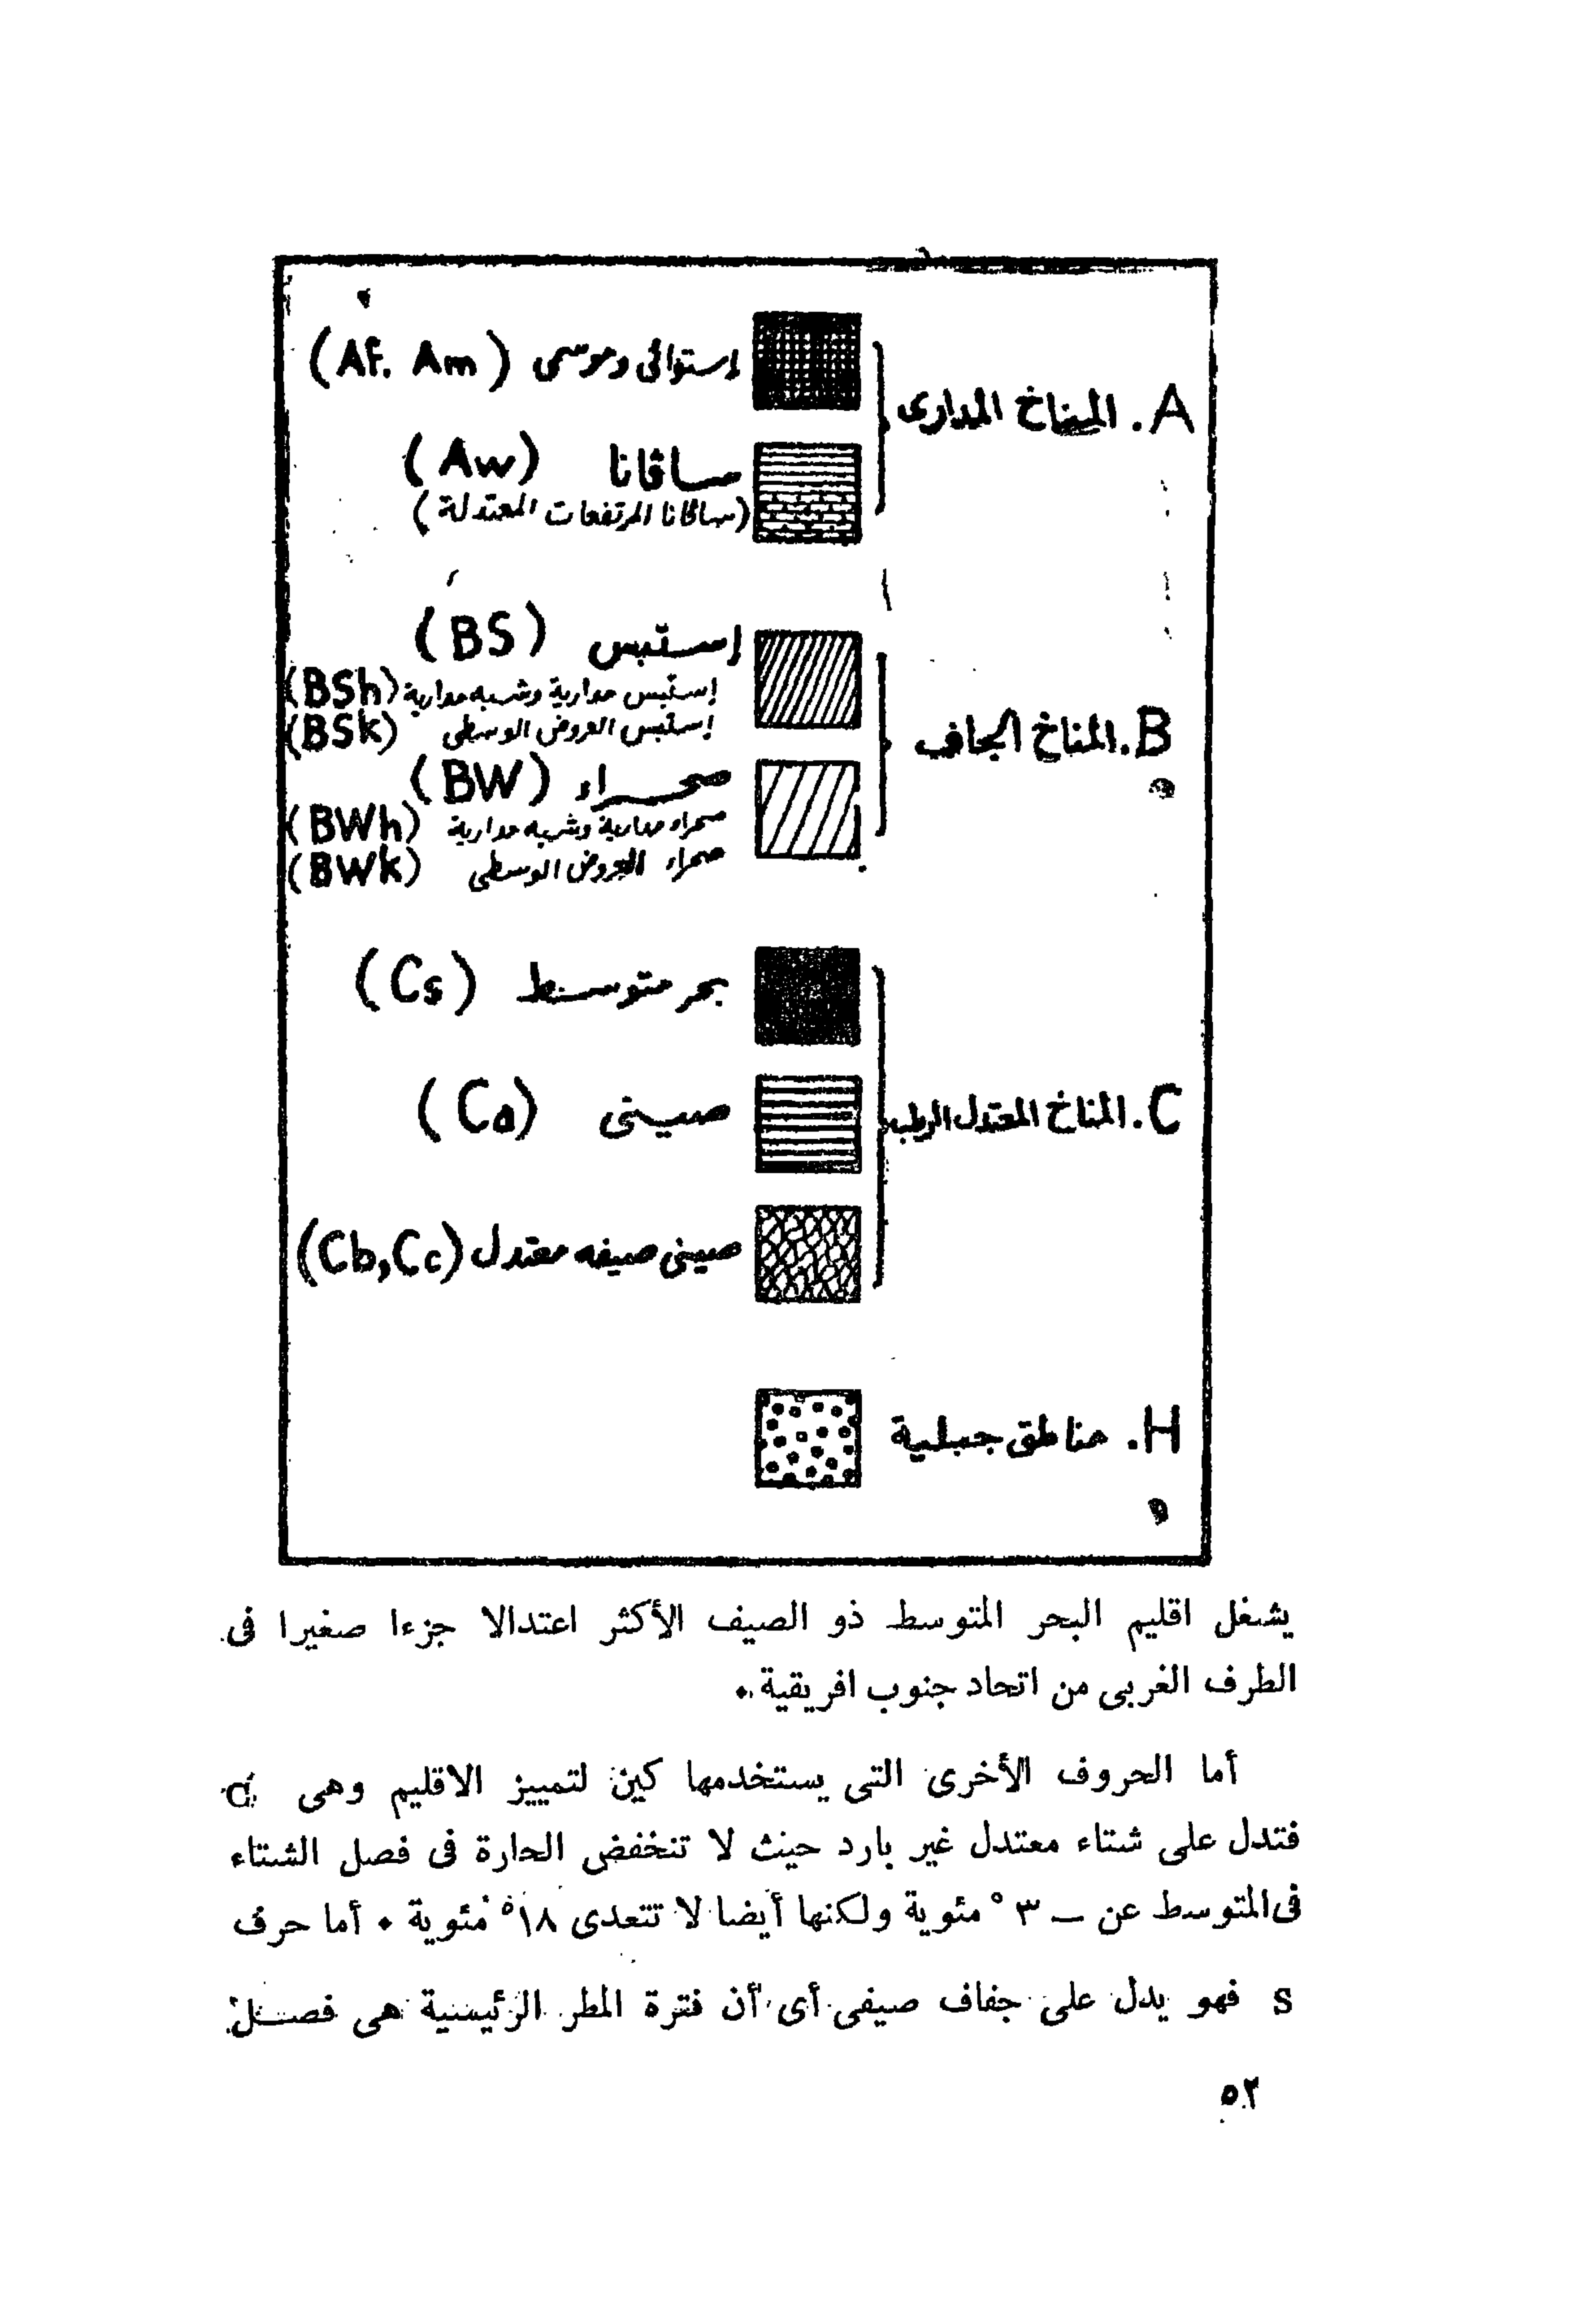 A. المناخ المدارى
إستوائى وموسمى (Af. Am)
ساڤانا (Aw)
(ساڤانا المرتفعات المعتدلة)
B. المناخ الجاف
إستبس (BS)
إستبس مدارية وشبه مدارية (BSh)
إستبس العروض الوسطى (BSk)
صحراء (BW)
صحراء مدارية وشبه مدارية (BWh)
صحراء العروض الوسطى (BWk)
C. المناخ المعتدل الرطب
بحر متوسط (Cs)
صينى (Ca)
صينى صيفه معتدل (Cb,Cc)
H. مناطق جبلية
يشغل اقليم البحر المتوسط ذو الصيف الأكثر اعتدالا جزءا صغيرا فى
الطرف الغربى من اتحاد جنوب افريقية ٠
أما الحروف الأخرى التى يستخدمها كين لتمييز الاقليم وهى
فتدل على شتاء معتدل غير بارد حيث لا تنخفض الحارة فى فصل الشتاء
فى المتوسط عن ــ ٣ ° مئوية ولكنها أيضا لا تتعدى ١٨° مئوية ٠ أما حرف
s فهو يدل على جفاف صيفى أى أن فترة المطر الرئيسية هى فصل
٥٢